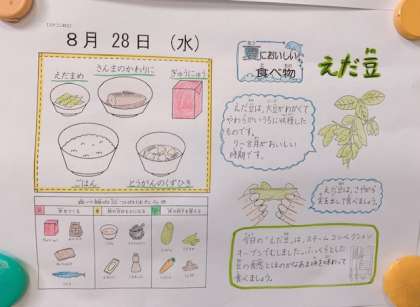 8月 28日 (水)
えだまめ
さんまのかわりに
ぎゅうにゅう
ごはん
とうがんのくずひき
夏においしい
食べ物
えだ豆
えだ豆は、大豆がわかくて
やわらかいうちに収穫した
ものです。
7～8月がおいしい
時期です。
えだ豆は、さやから
実を出して食べましょう。
今日の「えだ豆」は、スチームコンベクション
オーブンでむしました。ふっくらとした
豆の食感とほのかなあま味を味わって
食べましょう。